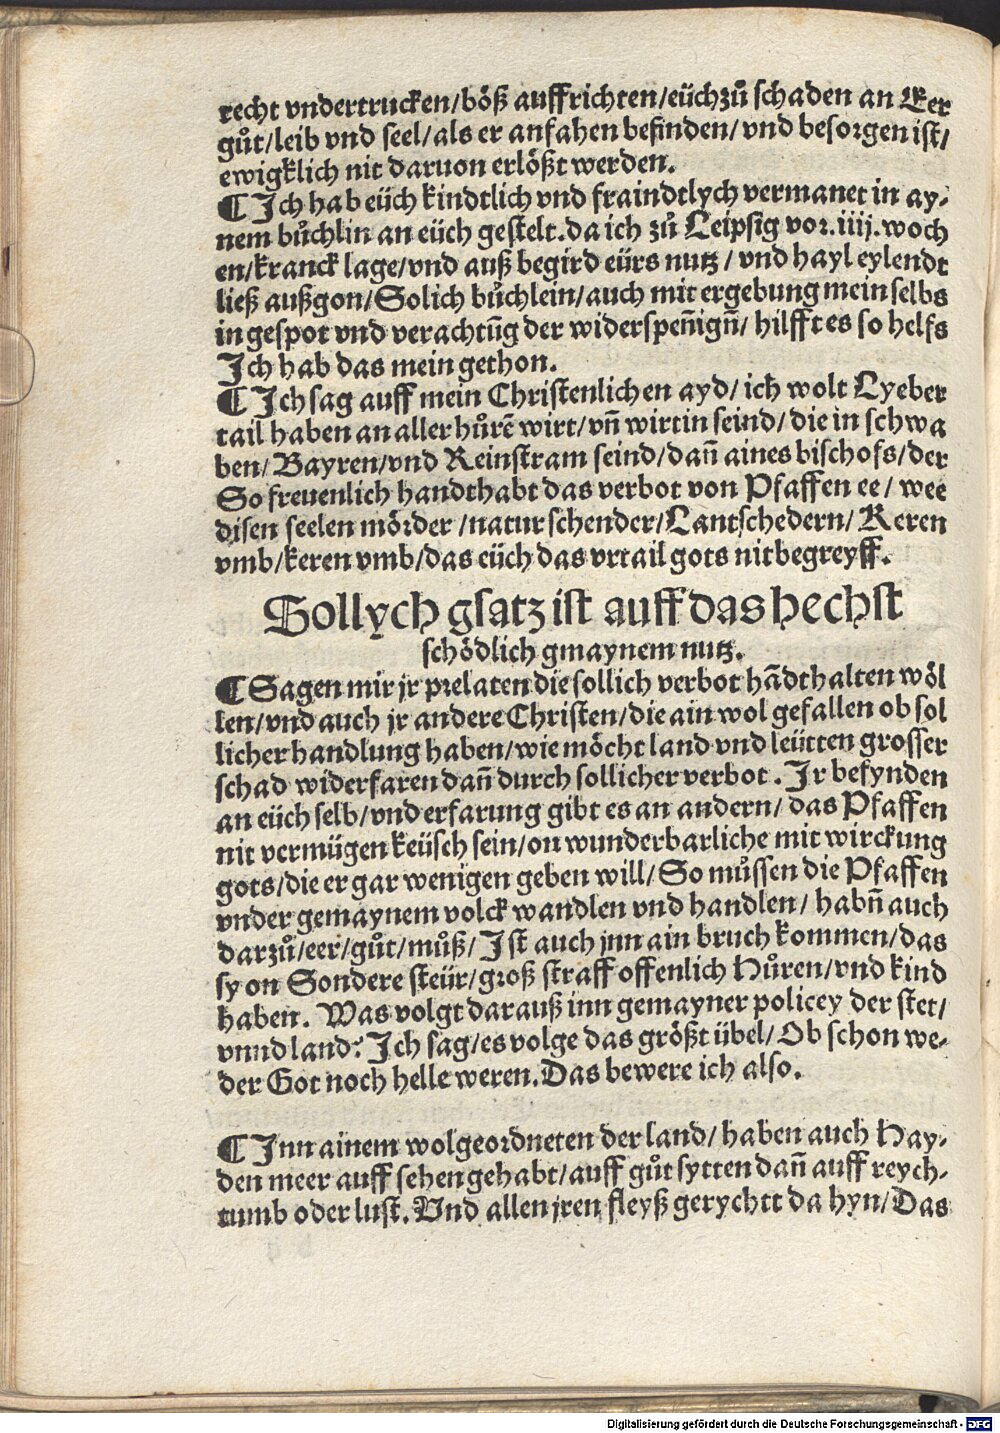 recht vndertrucken/böß auffrichten/eüchzů schaden an Eer
gůt/leib vnd seel/als er anfahen befinden/vnd besorgen ist/
ewigklich nit daruon erlößt werden.
¶ Ich hab eüch kindtlich vnd fraindtlych vermanet in ay-
nem bůchlin an eüch gestelt.da ich zů Leipsig vor.iiij.woch
en/kranck lage/vnd auß begird eürs nutz/vnd hayl eylendt
ließ außgon/Solich bůchlein/auch mit ergebung mein selbs
in gespot vnd verachtūg der widerspen̄ign̄/hilfft es so helfs
Ich hab das mein gethon.
¶ Ich sag auff mein Christenlichen ayd/ich wolt Lyeber
tail haben an aller hůrē wirt/vn̄ wirtin seind/die in schwa
ben/Bayren/vnd Reinstram seind/dan̄ aines bischofs/der
So freuenlich handthabt das verbot von Pfaffen ee/wee
disen seelen mörder/natur schender/Lantschedern/Keren
vmb/keren vmb/das eüch das vrtail gots nit begreyff.
Sollych gsatz ist auff das hechst
schödlich gmaynem nutz.
¶ Sagen mir jr prelaten die sollich verbot hādthalten wöl
len/vnd auch jr andere Christen/die ain wol gefallen ob sol
licher handlung haben/wie möcht land vnd leütten grosser
schad widerfaren dan̄ durch sollicher verbot. Ir befynden
an eüch selb/vnd erfarung gibt es an andern/das Pfaffen
nit vermügen keüsch sein/on wunderbarliche mit wirckung
gots/die er gar wenigen geben will/So můssen die Pfaffen
vnder gemaynem volck wandlen vnd handlen/habn̄ auch
darzů/eer/gůt/můß/Ist auch jnn ain bruch kommen/das
sy on Sondere steür/groß straff offenlich Hůren/vnd kind
haben. Was volgt darauß inn gemayner policey der stet/
vnnd land? Ich sag/es volge das größt übel/Ob schon we-
der Got noch helle weren.Das bewere ich also.
¶ Inn ainem wolgeordneten der land/haben auch Hay-
den meer auff sehen gehabt/auff gůt sytten dan̄ auff reych-
tumb oder lust.Vnd allen jren fleyß gerychtt da hyn/Das
Digitalisierung gefördert durch die Deutsche Forschungsgemeinschaft - DFG